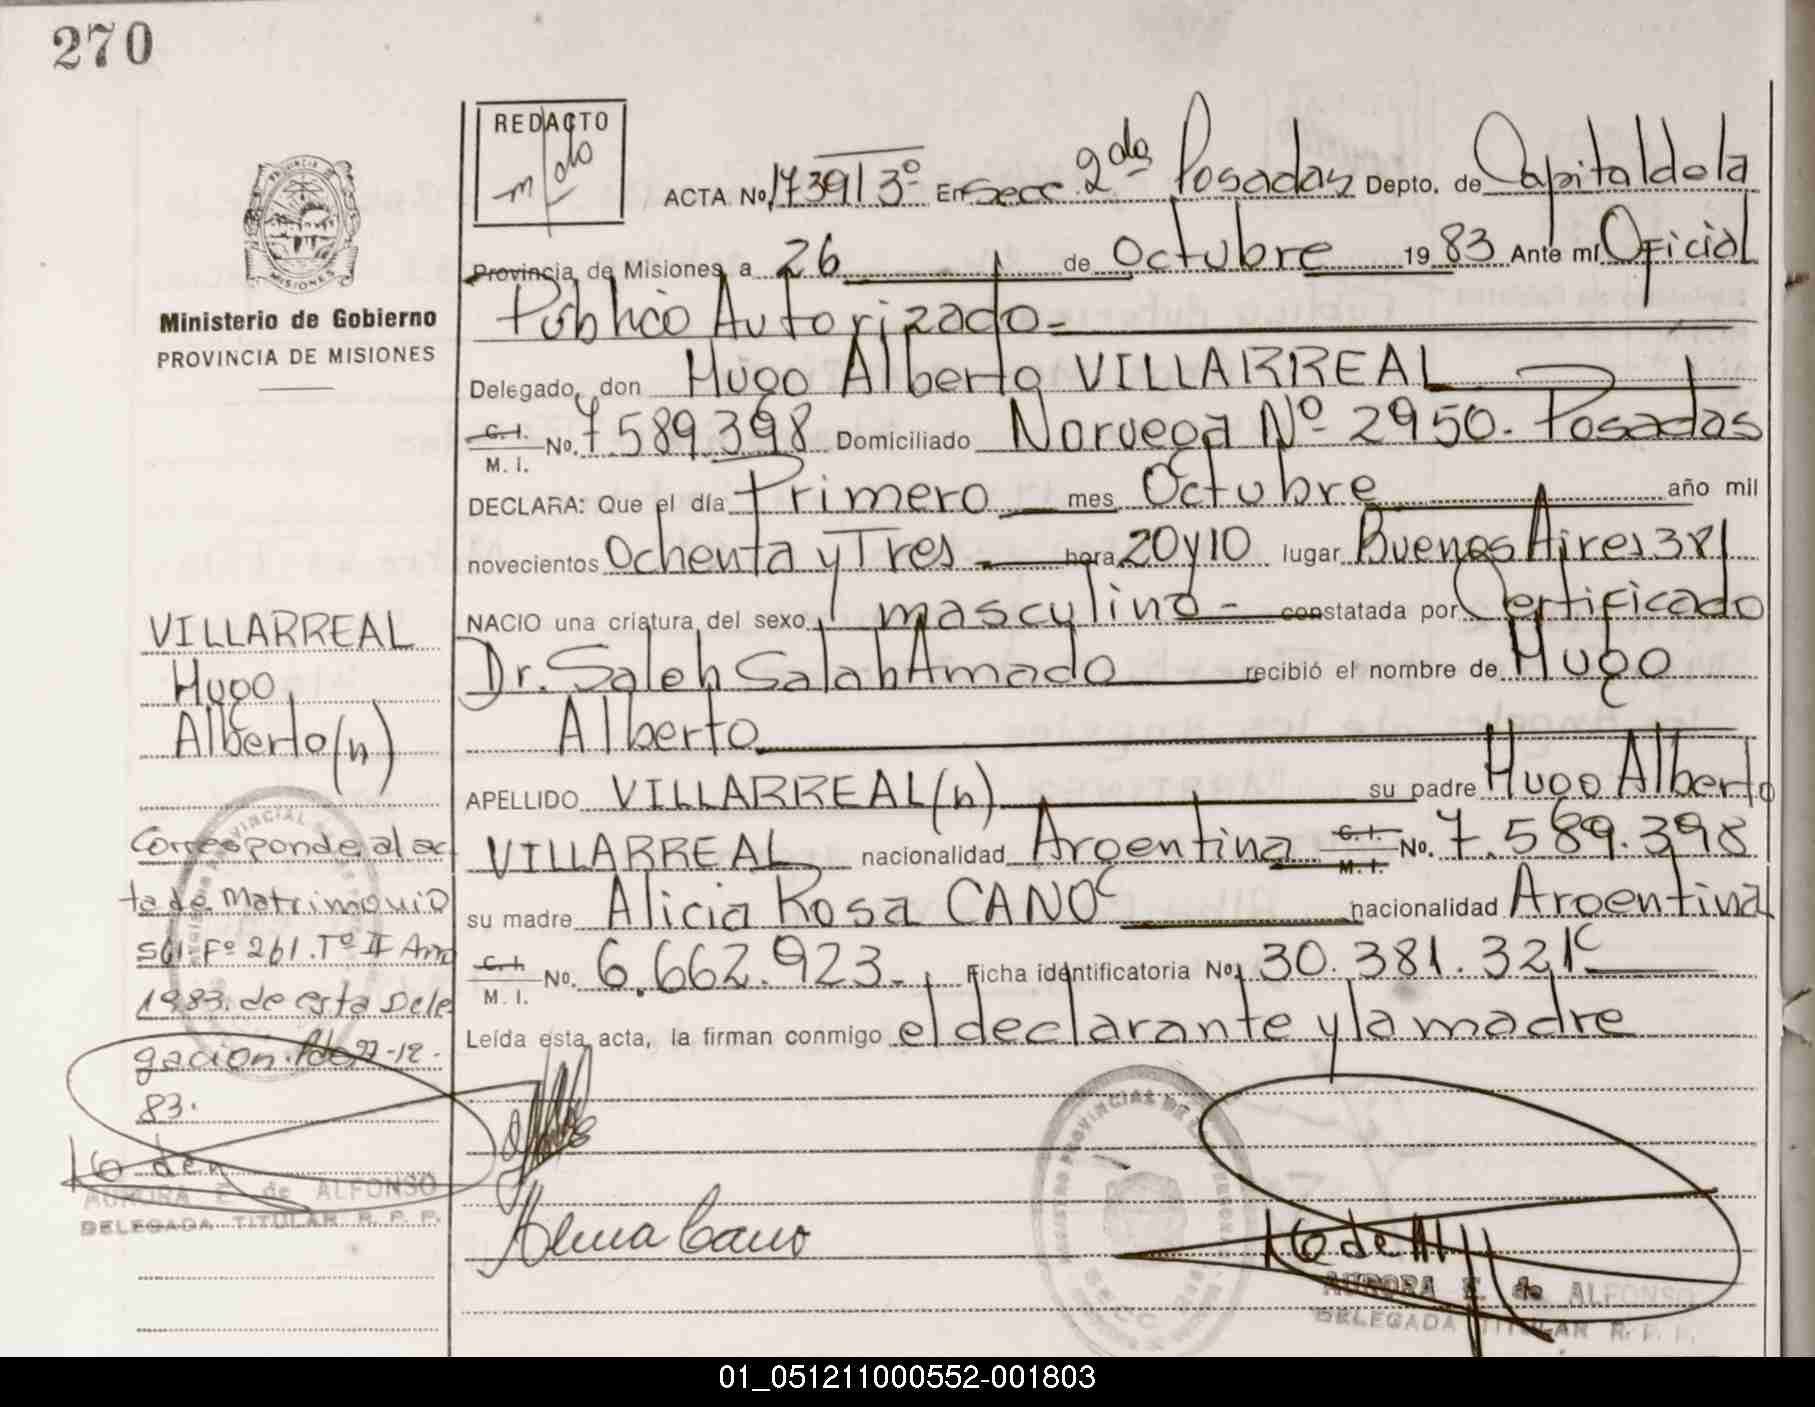 270
REDACTO
ACTA No. 1739 | 3º En Secc 2da Posadas Depto. de Capital de la
Provincia de Misiones a 26 de Octubre 1983 Ante mí Oficial
Público Autorizado.=
Ministerio de Gobierno
PROVINCIA DE MISIONES
Delegado, don Hugo Alberto VILLARREAL
C. I. M. I. No. 7.589.398 Domiciliado Noruega Nº 2950. Posadas
DECLARA: Que el día Primero mes Octubre año mil
novecientos Ochenta y Tres hora 20 y 10 lugar Buenos Aires 381
NACIO una criatura del sexo masculino - constatada por Certificado
Dr. Saleh Salah Amado recibió el nombre de Hugo
Alberto
APELLIDO VILLARREAL (h) su padre Hugo Alberto
VILLARREAL nacionalidad Argentina C. I. M. I. No. 7.589.398
su madre Alicia Rosa CANO nacionalidad Argentina
C. I. M. I. No. 6.662.923.- Ficha identificatoria No. 30.381.321
Leída esta acta, la firman conmigo el declarante y la madre
VILLARREAL
Hugo
Alberto (h)
Corresponde al ac
ta de Matrimonio
561. Fº 261. Tº II Año
1983. de esta Dele
gación. Pdas 27-12-
83.
AURORA E. de ALFONSO
DELEGADA TITULAR R. P. P.
Cano
AURORA E. de ALFONSO
DELEGADA TITULAR R. P. P.
01_051211000552-001803